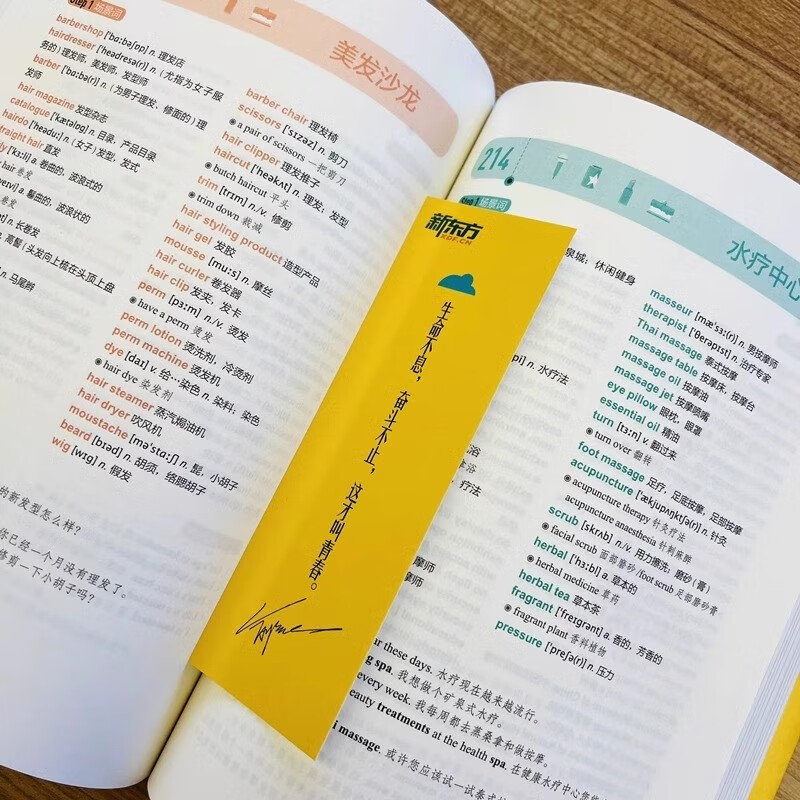 Step 1 场景词
美发沙龙
barbershop ['bɑːbəʃɒp] n. 理发店
hairdresser ['heədresə(r)] n. (尤指为女子服
务的) 理发师, 美发师, 发型师
barber ['bɑːbə(r)] n. (为男子理发、修面的) 理
发师
hair magazine 发型杂志
catalogue ['kætəlɒɡ] n. 目录, 产品目录
hairdo ['heəduː] n. (女子) 发型, 发式
traight hair 直发
a. 卷曲的, 波浪式的
hair 卷发
a. 鬈曲的, 波浪状的
n. 长卷发
n. 高髻 (头发向上梳在头顶上盘
n. 马尾辫
barber chair 理发椅
scissors ['sɪzəz] n. 剪刀
a pair of scissors 一把剪刀
hair clipper 理发推子
haircut ['heəkʌt] n. 理发; 发型
butch haircut 平头
trim [trɪm] n./v. 修剪
trim down 裁减
hair styling product 造型产品
hair gel 发胶
mousse [muːs] n. 摩丝
hair curler 卷发器
hair clip 发夹, 发卡
perm [pɜːm] n./v. 烫发
have a perm 烫发
perm lotion 烫洗剂, 冷烫剂
perm machine 烫发机
dye [daɪ] v. 给…染色 n. 染料; 染色
hair dye 染发剂
hair steamer 蒸汽焗油机
hair dryer 吹风机
moustache [mə'stɑːʃ] n. 髭, 小胡子
beard [bɪəd] n. 胡须, 络腮胡子
wig [wɪɡ] n. 假发
的新发型怎么样?
你已经一个月没有理发了。
修剪一下小胡子吗?
新东方
XDF.CN
生命不息，奋斗不止，这才叫青春。
214
Step 1 场景词
水疗中心
泉城; 休闲健身
n. 水疗法
浴
浴
, 疗法
摩师
摩师
masseur [mæ'sɜː(r)] n. 男按摩师
therapist ['θerəpɪst] n. 治疗专家
Thai massage 泰式按摩
massage table 按摩床, 按摩台
massage oil 按摩油
massage jet 按摩喷嘴
eye pillow 眼枕, 眼罩
essential oil 精油
turn [tɜːn] v. 翻过来
turn over 翻转
foot massage 足疗, 足底按摩, 足部按摩
acupuncture ['ækjupʌŋktʃə(r)] n. 针灸
acupuncture therapy 针灸疗法
acupuncture anaesthesia 针刺麻醉
scrub [skrʌb] n./v. 用力擦洗; 磨砂 (膏)
facial scrub 面部磨砂/foot scrub 足部磨砂膏
herbal ['hɜːbl] a. 草本的
herbal medicine 草药
herbal tea 草本茶
fragrant ['freɪɡrənt] a. 香的, 芳香的
fragrant plant 香料植物
pressure ['preʃə(r)] n. 压力
these days. 水疗现在越来越流行。
spa. 我想做个矿泉式水疗。
every week. 我每周都去蒸桑拿和做按摩。
treatments at the health spa. 在健康水疗中心
massage, 或许您应该试一试泰式